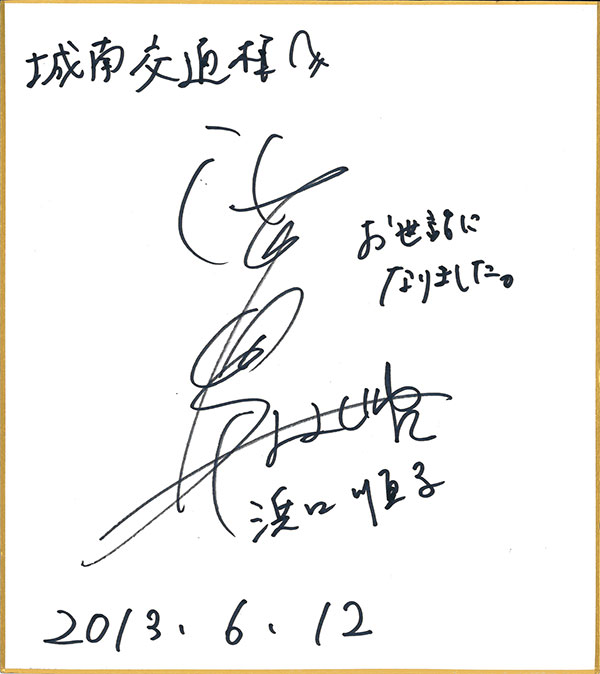 城南交通様へ
お世話に
なりました。
浜口順子
2013.6.12